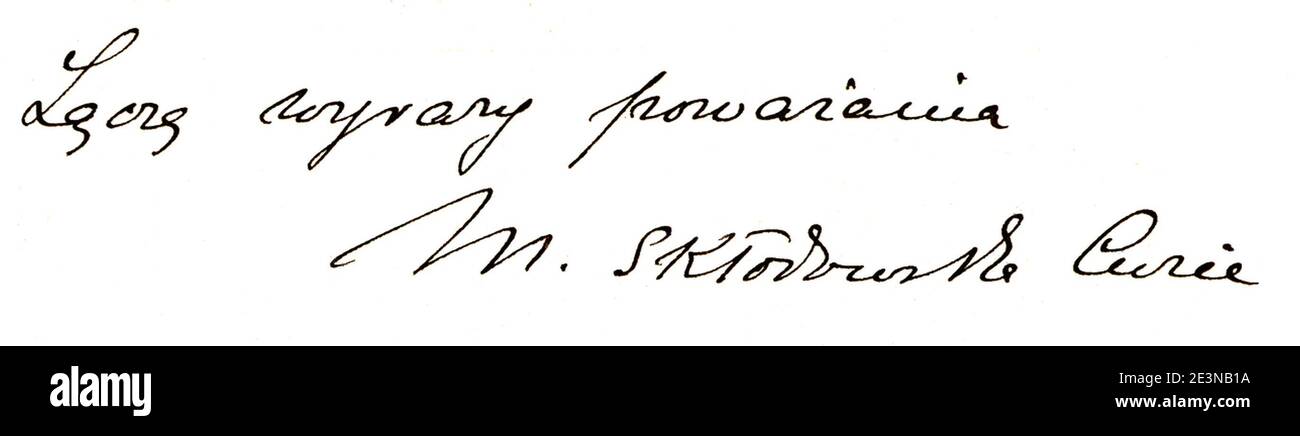 Łączę wyrazy poważania
M. Skłodowska Curie
alamy
Image ID: 2E3NB1A
www.alamy.com